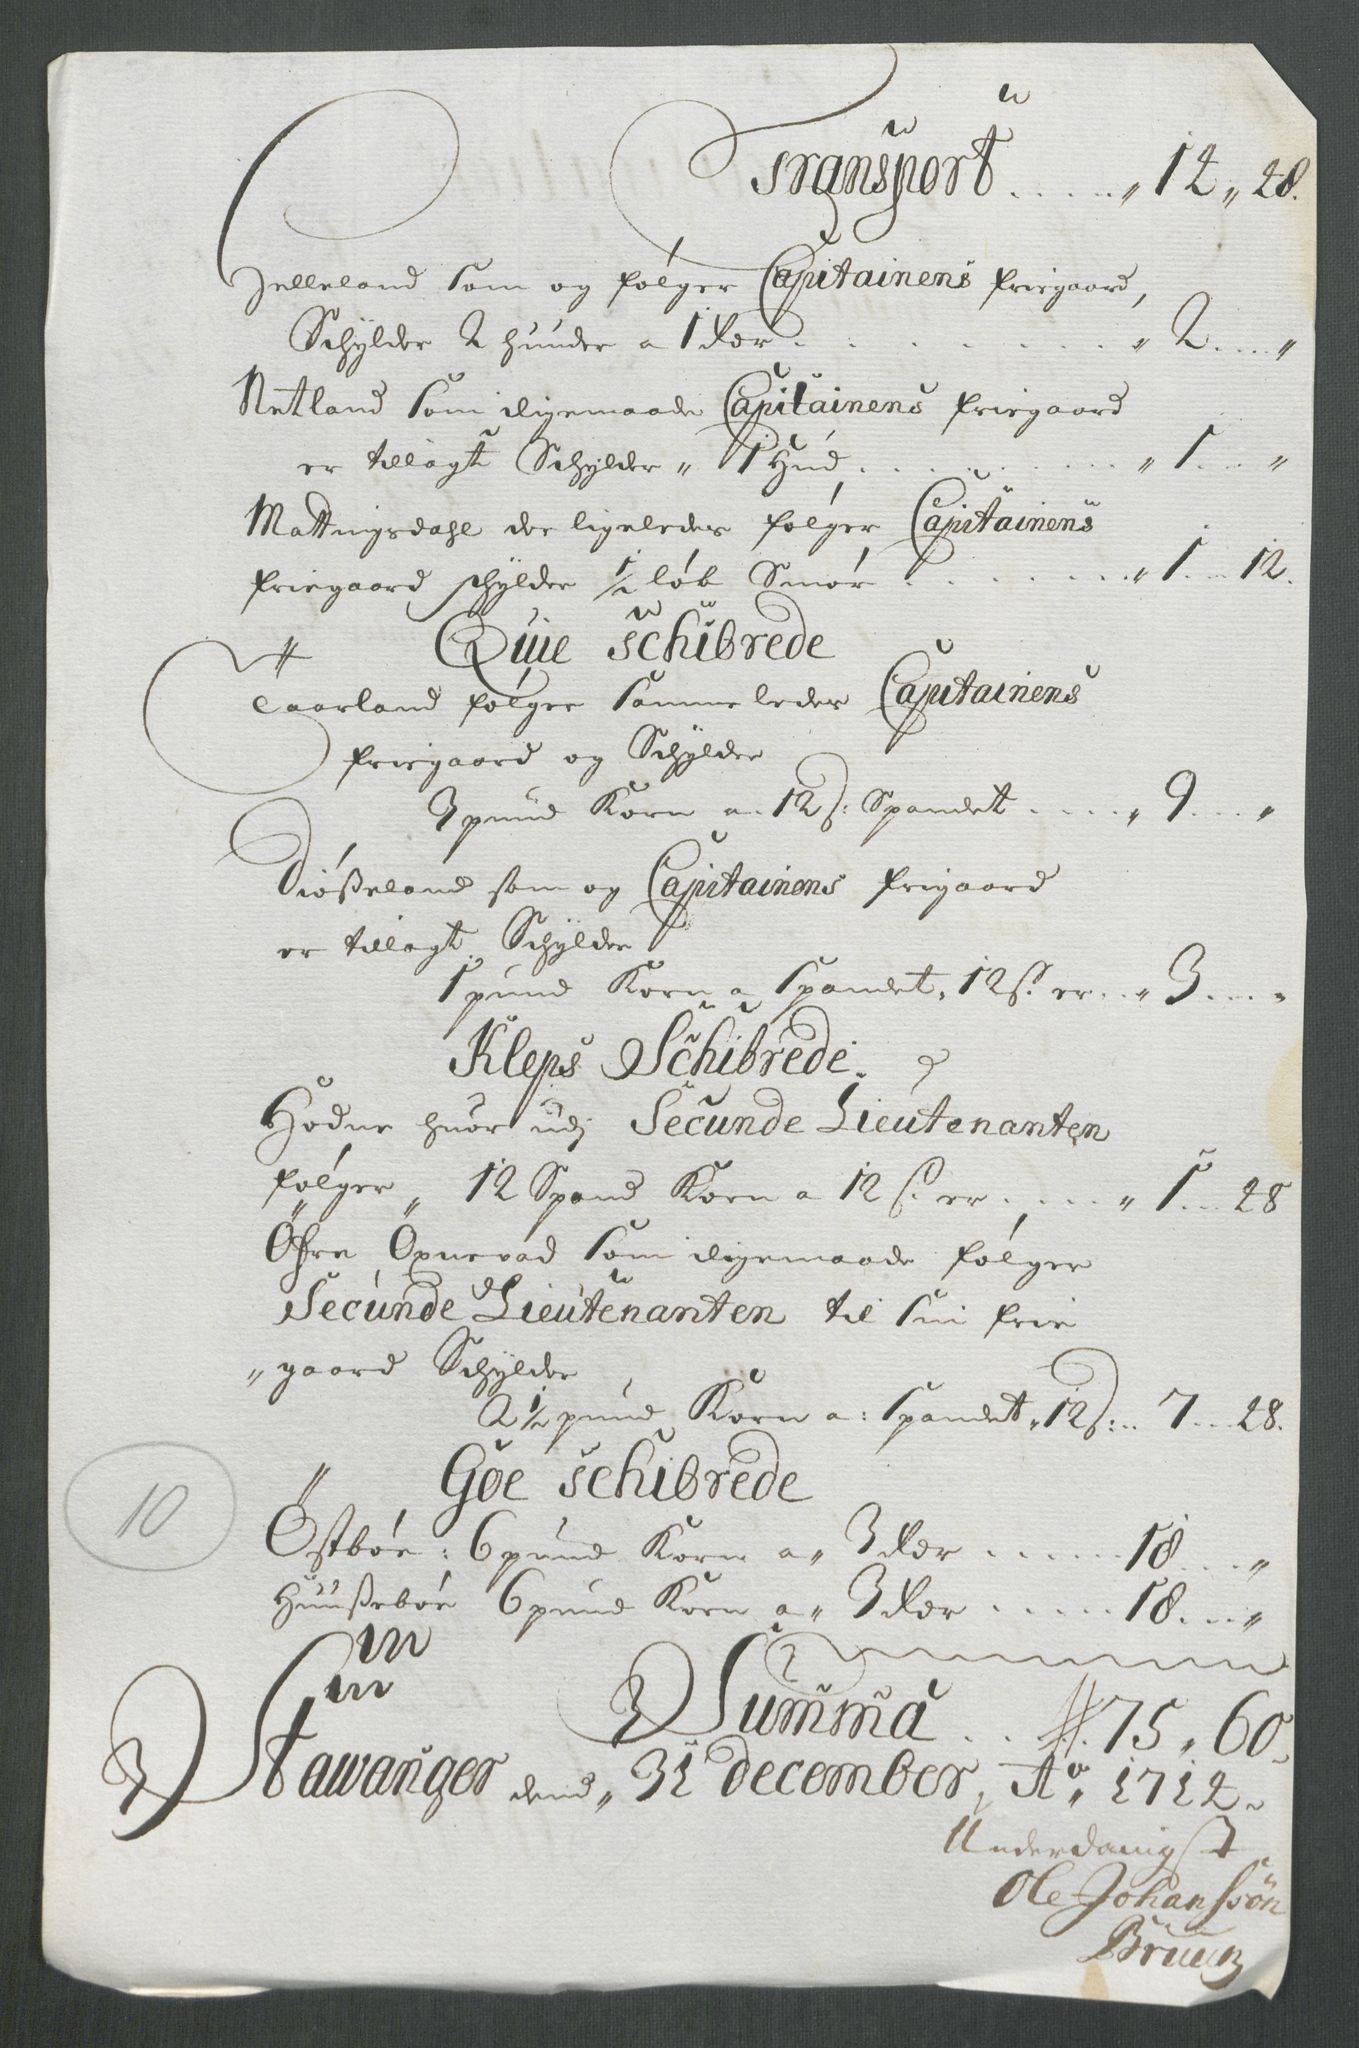 Transport . . . . . „ 12 „ 28.
Jelleland som og følger Capitainens friegaard,
Schylder 2 huuder a 1 dlr . . . . . . „ 2 . . . „
Netland som iligemaade Capitainens friegaard
er tillagt Schylder „ 1 Hud . . . . . . „ 1 . . . „
Mattingsdahl der ligeledes følger Capitainens
friegaard schylder ½ løb Smør . . . . . . „ 1 . . . 12.
Quie Schibrede
Taarland følger sammeledes Capitainens
friegaard og Schylder
3 pund Korn a 12 s: Spandet . . . . „ 9 . . . „
Diøsseland som og Capitainens frigaard
er tillagt Schylder
1 pund Korn a Spandet, 12 s. er . . „ 3 . . . „
Kleps Schibrede.
Hodne huor udj Secunde Lieutenanten
følger „ 12 Spand Korn a 12 s. er . . . . „ 1 . . . 28
Øfre Oxnevad som iligemaade følger
Secunde Lieutenanten til sin frie
„ gaard Schylder
2 ½ pund Korn a: Spandet „ 12 s: . . 7 . . . 28.
Goe Schibrede
Østbøe : 6 pund Korn a „ 3 dlr . . . . . 18 . . . „
Huussebøe 6 pund Korn a „ 3 dlr . . . . . 18 . . . „
Summa . . 75 „ 60
Stawanger dend „ 31 december, Ao. 1712.
Underdanigst
Ole Johanssøn
Bruun
10